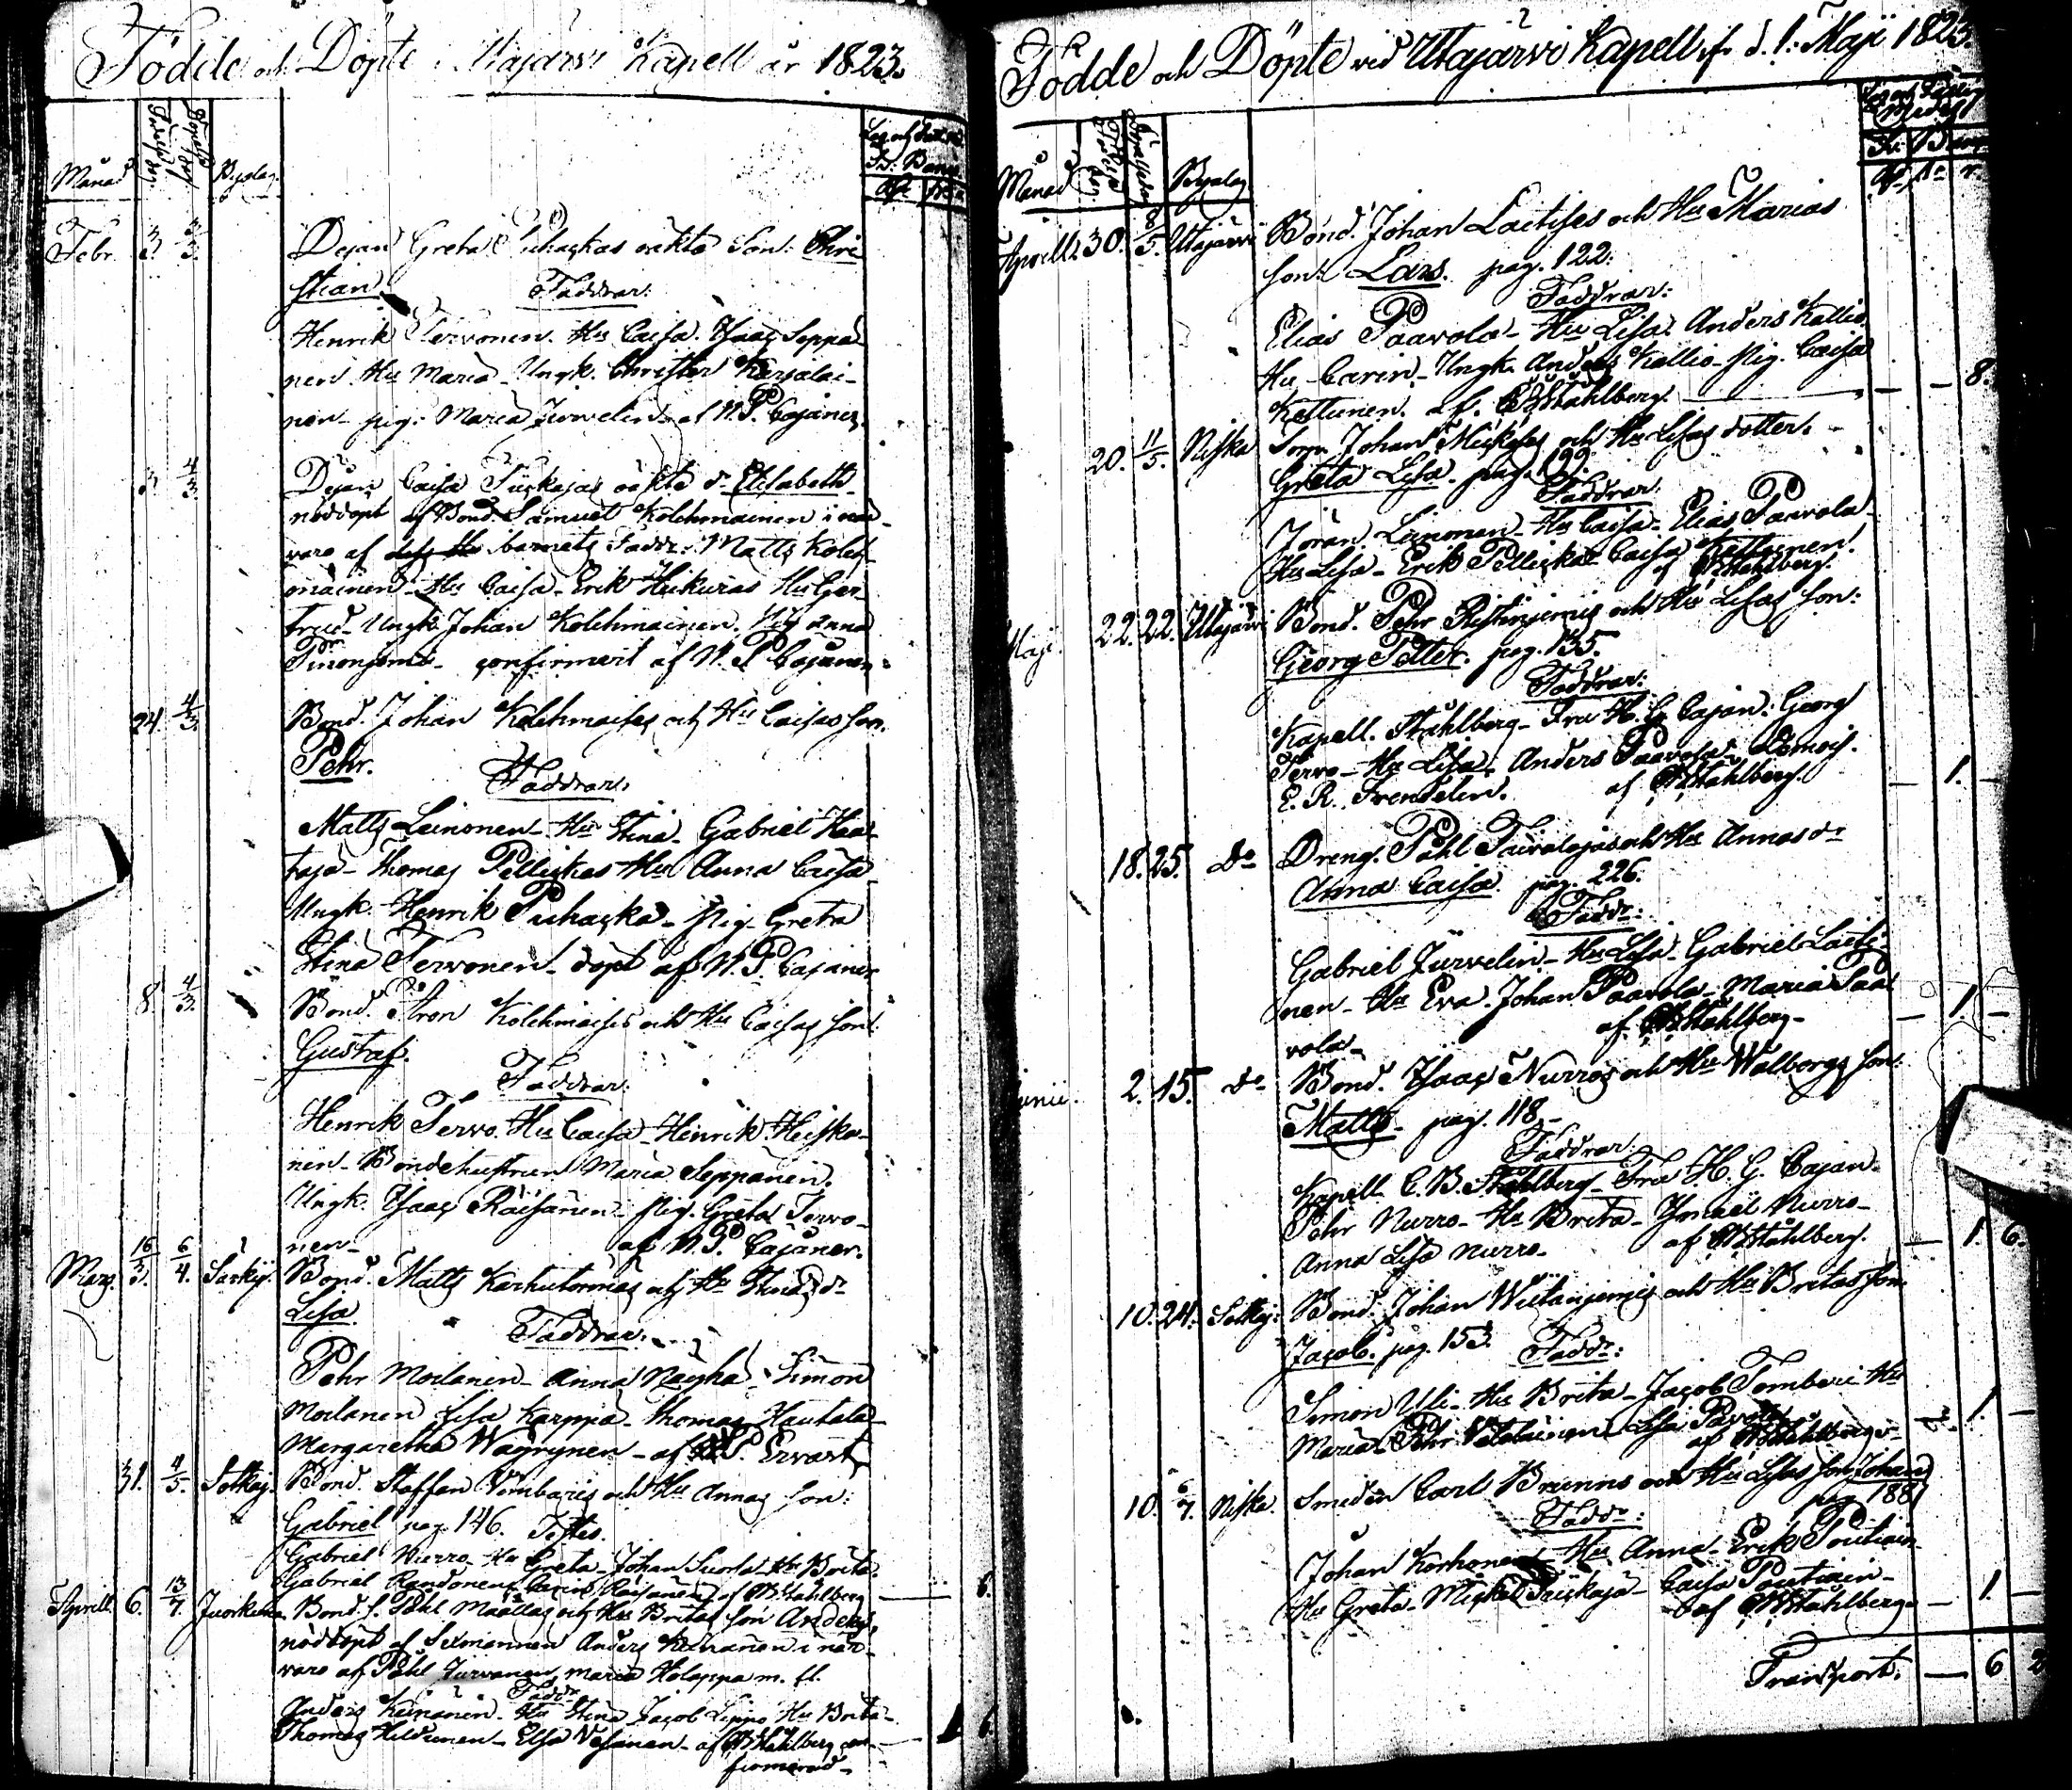 Födde och Döpte i Utajärvi Kapell år 1823.
Månad
Byalag
Febr. 3 3/3. Dejan Greta Puhackas oäkta Son: Chri
stian.
Faddrar:
Henrik Tervonen. Hu Caisa. Isaac Seppä
nen Hu Maria. Ungk. Christer Karjalai-
nen pig. Maria Jurvelin af N.P. Cajaner.
3 4/3. Dejan Caisa oäkta dr Elisabeth
nöddöpt af Bond. Samuel Kolehmainen i när
varo af barnets Faddr: Matts Koleh
mainen Hu Caisa Erik Huikuras Hu Ger-
trud Ungk. Johan Kolehmainen. Pig Anna
confirmert af N. P Cajaner.
24. 4/3. Bond. Johan Kolehmaises och Hu Caisas son.
Pehr.
Faddrar.
Matts Leinonen Hu Stina Gabriel Haa
taja Thomas Pellickas Hu Anna Caisa
Ungk. Henrik Puhacka Pig. Greta
Stina Tervonen döpt af N. P. Cajaner
8. 4/3. Bond. Aron Kolehmaises och Hu Caisas son:
Gustaf.
Faddrar.
Henrik Tervo. Hu Caisa Henrik Heiska-
nen Bondehustrun Maria Seppänen.
Ungk. Isaac Räisänen Pig. Greta Tervo-
nen af N. P. Cajaner.
Mars. 16/3. 6/4. Särkij. Bond. Matts Karhutormas och Hu Stinas dr
Lisa.
Faddrar.
Pehr Moilanen Anna Simon
Moilanen Lisa Karppa Thomas Hautala
Margaretha Wäyrynen af P. Ervast
31. 4/5. Sotkaj. Bond. Staffan och Hu Annas son:
Gabriel pag. 146. Testes.
Gabriel Nurro Hu Greta Johan Suorla Hu Brita.
Gabriel Carin Räisänen af CBStåhlberg 6.
Aprill 6. 13/7. Juorkuna Bond. s. Påhl Määttas och Hu Britas son Anders,
nöddöpt af Sexmannen Anders Keinänen i när
varo af Påhl Maria Holappa m. fl.
Faddr.
Anders Keinänen. Hu Stina Jacob Lippo Hu Brita
Thomas Elsa Vesanen af CBStåhlberg con 6.
firmerad
2
Födde och Döpte vid Utajärvi Kapell fr. d. 1. Maji 1823.
Månad
Byalag
Aprill. 30. 8/5. Utajärvi Bond. Johan Laitises och Hu Marias
son: Lars. pag. 122.
Faddrar:
Elias Paavola Hu Lisa. Anders Kallio.
Hu Carin Ungk. Anders Kallio Pig. Caisa
Kettunen. af. CBStåhlberg. 8.
20. 11/5. Niska Johan och Hu Lisas dotter.
Greta Lisa pag. 199.
Faddrar.
Jöran Leinonen Hu Caisa Elias Paavola
Hu Lisa Erik Pellicka Caisa Kettunen.
af CBStåhlberg.
Maji. 22. 22. Utajärvi Bond. Pehr Ristinjemis och Hu Lisas son:
Georg Petter. pag. 135.
Faddrar:
Kapell. Ståhlberg Fru H. G. Cajan: Georg
Tervo Hu Lisa: Anders Paavola Demois.
E. R. Frenselin. af CBStåhlberg. 1.
18. 25. Do Dreng. Påhl Taivalojas och Hu Annas dr
Anna Caisa pag. 226.
Faddr:
Gabriel Jurvelin Hu Lisa Gabriel Laiti
nen Hu Eva. Johan Paavola Maria Paa
vola af CBStåhlberg 1.
Junii. 2. 15. Do Bond. Isaac Nurros och Hu Walborgs son:
Matts pag. 118
Faddrar
Kapell. C. B. Ståhlberg Fru H. G. Cajan
Pehr Nurro Hu Brita Ismael Nurro
Anna Lisa Nurro af CBStåhlberg. 1. 6.
10. 24. Sotkaj: Bond. Johan och Hu Britas son
Jacob. pag. 153. Faddr:
Simon Uli Hu Brita Jacob Tomberi Hu
Maria. Pehr Lisa Pavola
af CBStåhlberg 1.
10. 6/7. Niska. Smeden Carl Brunns och Hu Lisas son Johan
pag. 188
Faddr:
Johan Korhonen Hu Anna Erik Poutiain
Hu Greta Michel Caisa Poutiain
af CBStåhlberg 1.
Transport. 6 2